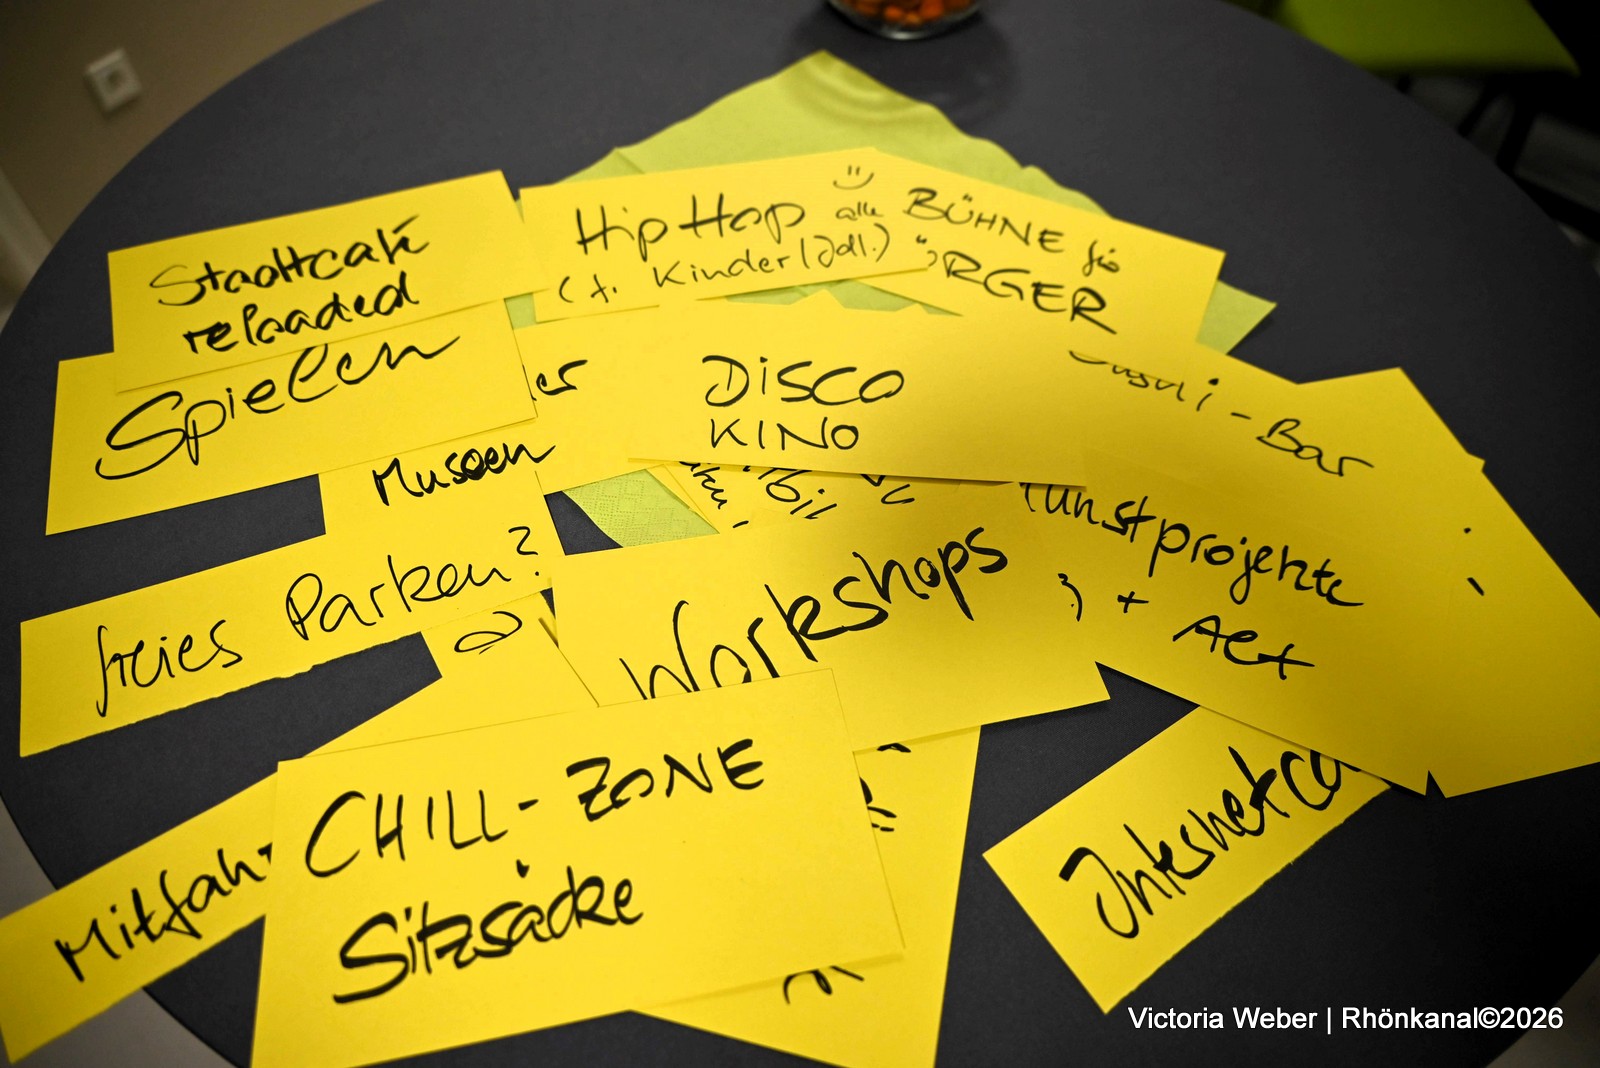 Stadtcafé
reloaded
HipHop alle
(f. Kinder/Jdl.)
BÜHNE für
ÜRGER
Spielen
DISCO
KINO
-Bar
Museen
freies Parken?
Workshops
unstprojekte
+ Act
CHILL-ZONE
Sitzsäcke
Mitfah
Internetca
Victoria Weber | Rhönkanal©2026